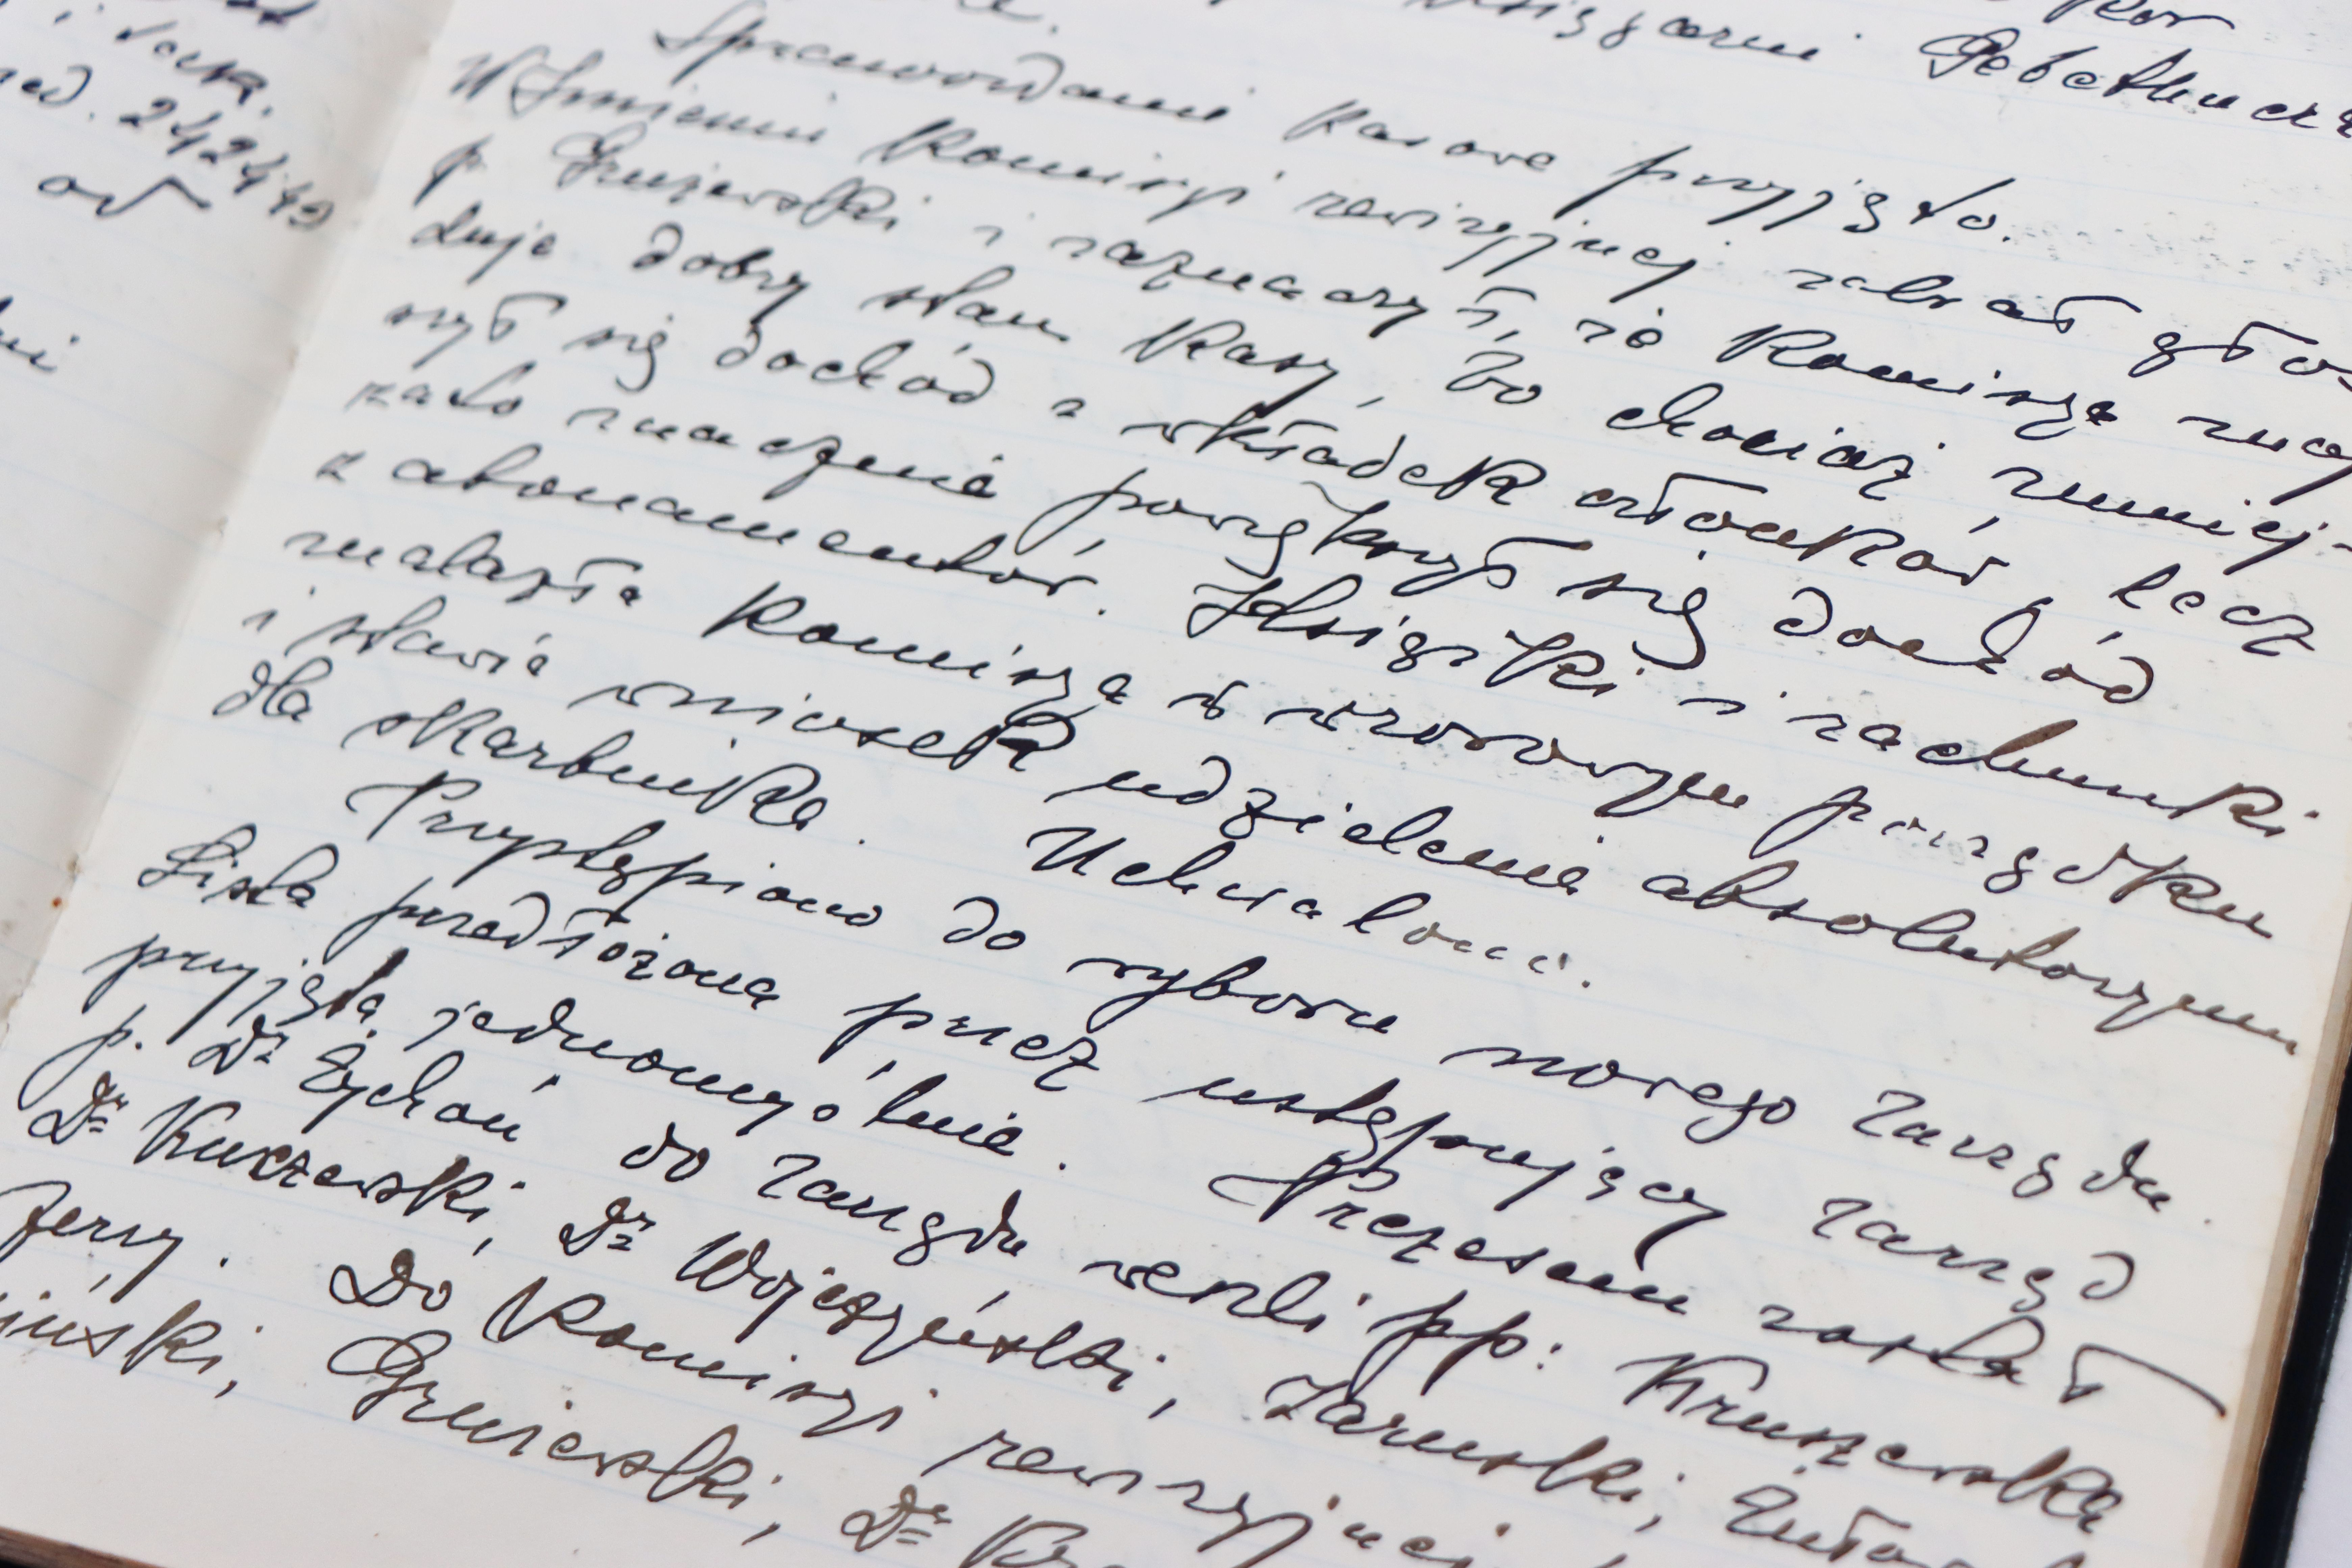 i
242 49
od
Gebethnera
Sprawozdanie kasowe przyjęto.
W Imieniu Komisyi rewizyjnej zabrał głos
p. Grużewski i zaznaczył, że Komisya znaj
duje dobry stan kasy, bo chociaż zmniej-
szył się dochód z wkładek członków, lecz
zato znacznie powiększył się dochód
z abonamentów. Książki i rachunki
znalazła Komisya w wzorowym porządku
i stawia wniosek udzielenia absolutoryum
dla skarbnika. Uchwalono.
Przystąpiono do wyboru nowego zarządu.
Lista przedłożona przez ustępujący zarząd
przyjęta jednomyślnie. Prezesem został
p. Dr Eychoń do zarządu weszli pp: Kruszewska
Dr Kuczewski, Dr Wojczyński, Zaruski,
Jerzy. Do Komisyi rewizyjnej
iński, Grużewski, Dr